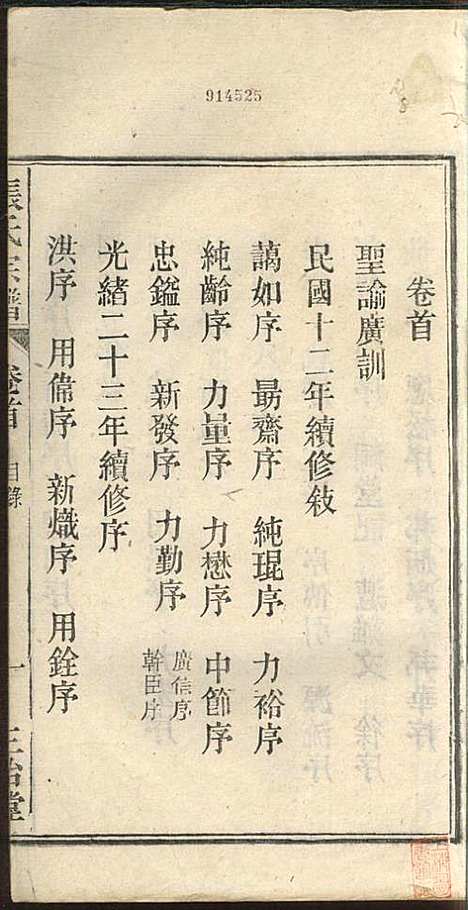 914525
卷首
聖諭廣訓
民國十二年續修敍
藹如序 勗齋序 純琨序 力裕序
純齡序 力量序 力懋序 中節序
忠鎰序 新發序 力勤序 廣信序
幹臣序
光緒二十三年續修序
洪序 用俻序 新熾序 用銓序
張氏宗譜 卷首 目錄 一